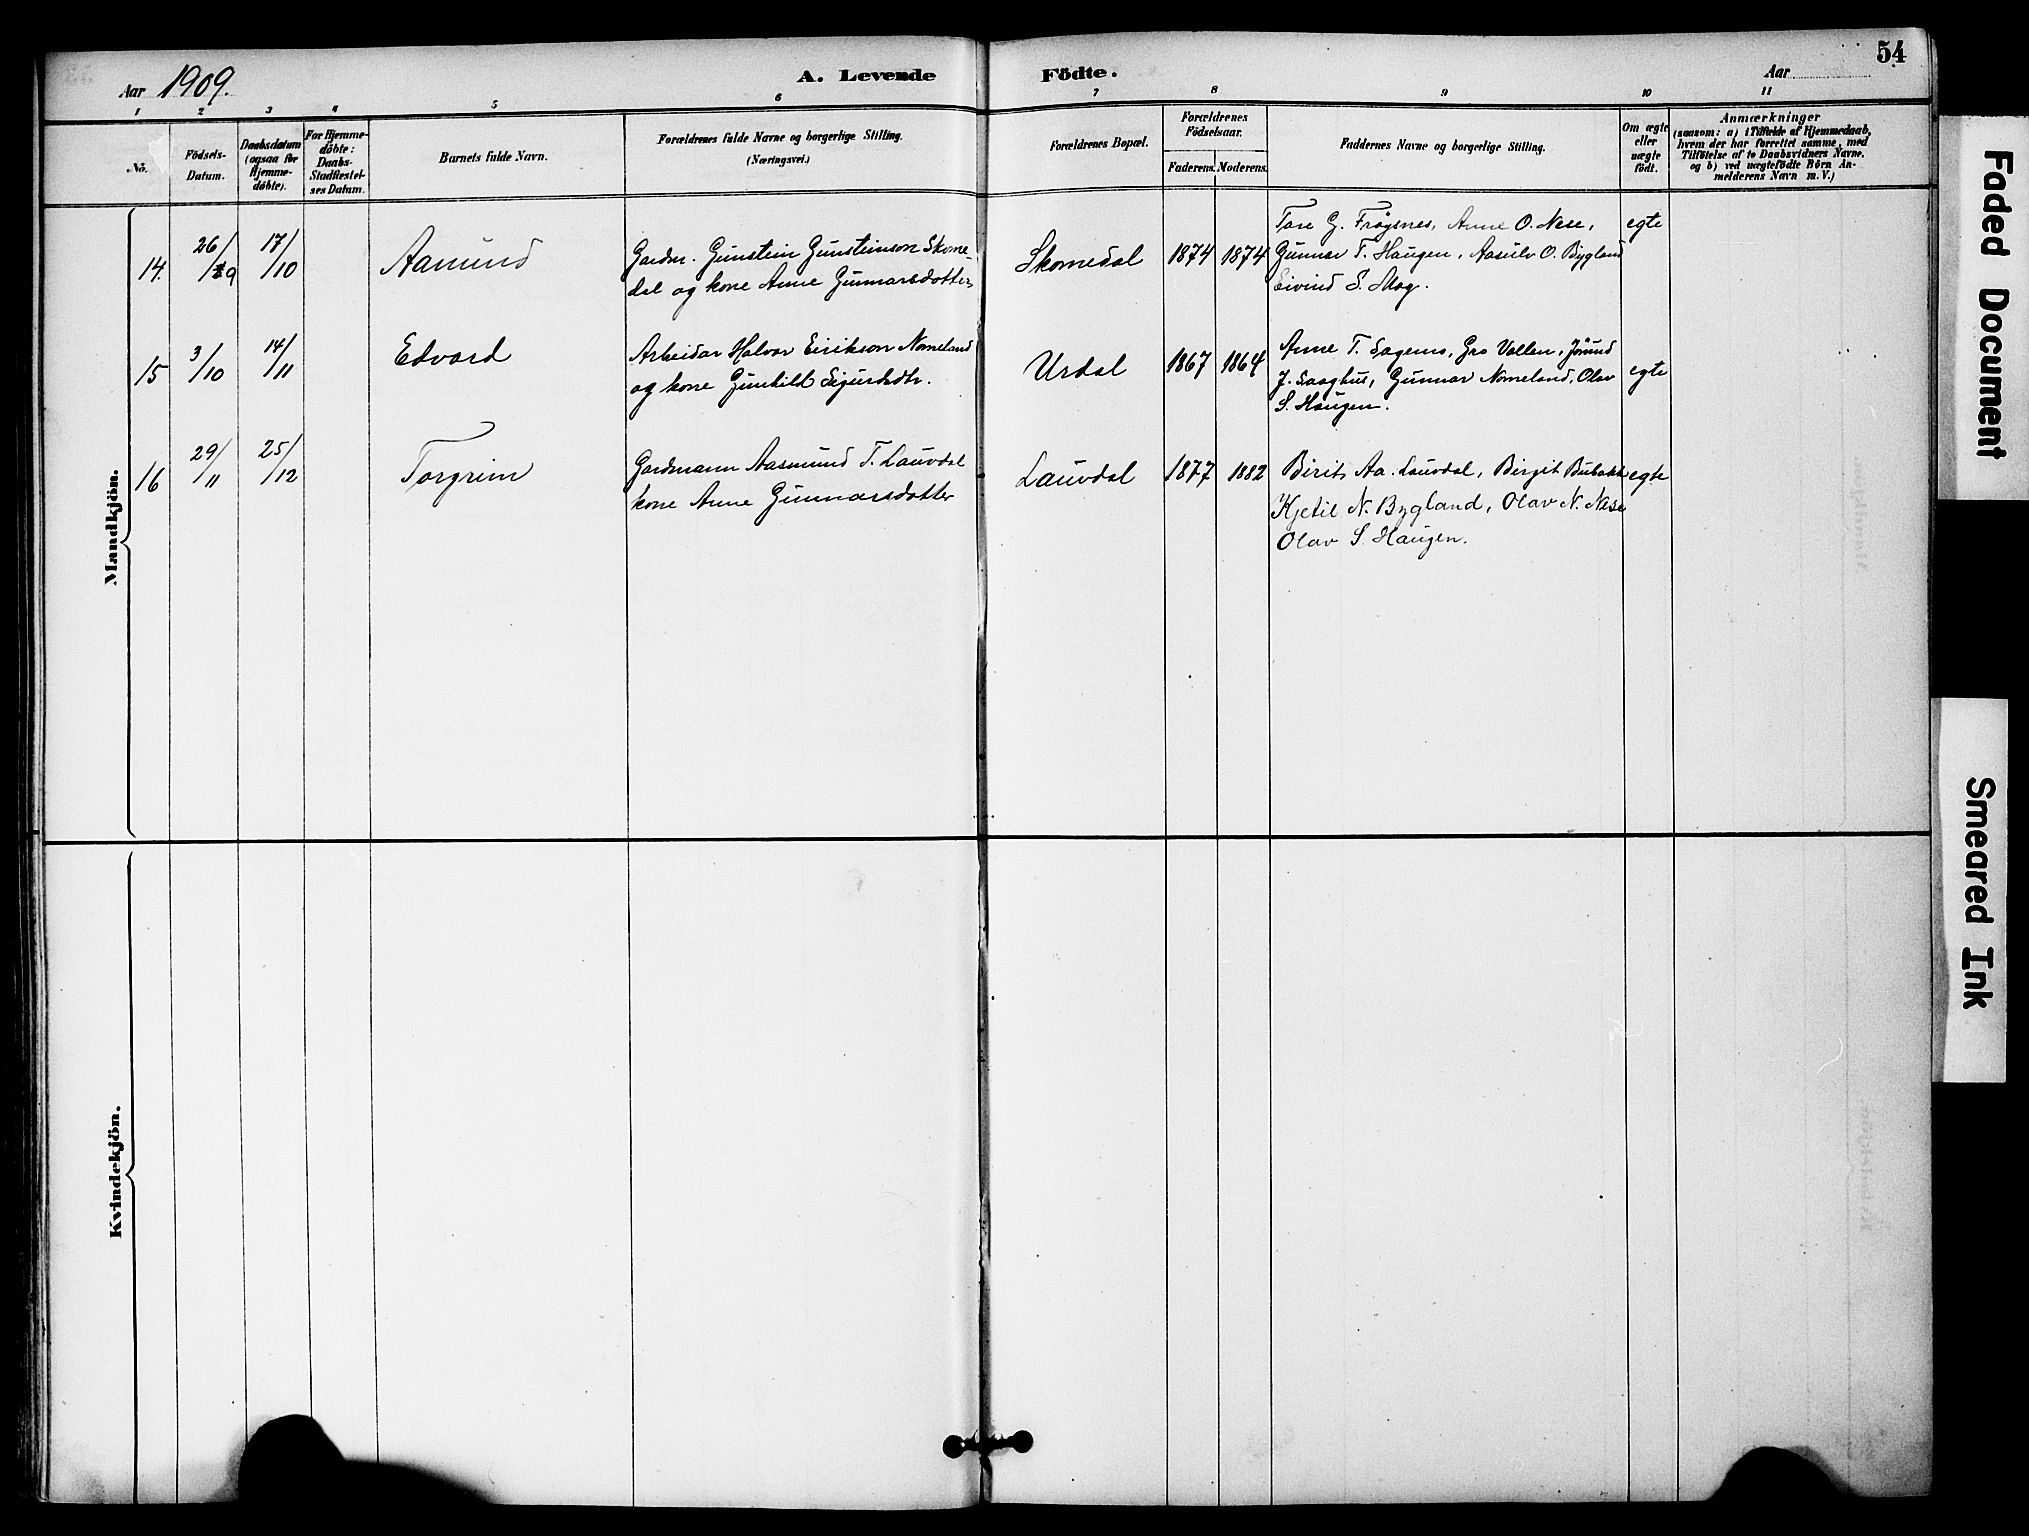 Aar 1909.
A. Levende Födte.
Aar
54
1 2 3 4 5 6 7 8 9 10 11
No.
Födsels-
Datum.
Daabsdatum
(ogsaa for
Hjemme-
döbte).
For Hjemme-
döbte:
Daabs-
Stadfæstel-
ses Datum.
Barnets fulde Navn.
Forældrenes fulde Navne og borgerlige Stilling.
(Næringsvei.)
Forældrenes Bopæl.
Forældrenes
Födselsaar.
Faderens. Moderens.
Faddernes Navne og borgerlige Stilling.
Om ægte
eller
uægte
födt.
Anmærkninger
(saasom: a) i Tilfælde af Hjemmedaab,
hvem der har forrettet samme, med
Tilföielse af to Daabsvidners Navne,
og b) ved uægtefödte Börn An-
melderens Navn m. V.)
Mandkjön.
14. 26/9 17/10 Aamund
Gardm. Gunstein Gunsteinson Skome-
dal og kone Anne Gunnarsdotter
Skomedal 1874 1874
Tore G. Frøysnes, Anne O. Nese,
Gunnar T. Haugen, Aasulv O. Bygland
Eivind S. Mog.
egte
15 3/10 14/11 Edvard
Arbeidar Halvor Eirikson Nomeland
og kone Gunhild Sigurdsdtr.
Urdal 1867 1864
Anne T. Gro Vallen, Jörund
J. Saaghus, Gunnar Nomeland, Olav
S. Haugen.
egte
16 29/11 25/12 Torgrim
Gardmann Aasmund T. Lauvdal
kone Anne Gunnarsdotter
Lauvdal 1877 1882
Birit Aa. Lauvdal, Birgit
Kjetil N. Bygland, Olav N. Nese
Olav S. Haugen.
egte
Kvindekjön.
Faded Document
Smeared Ink